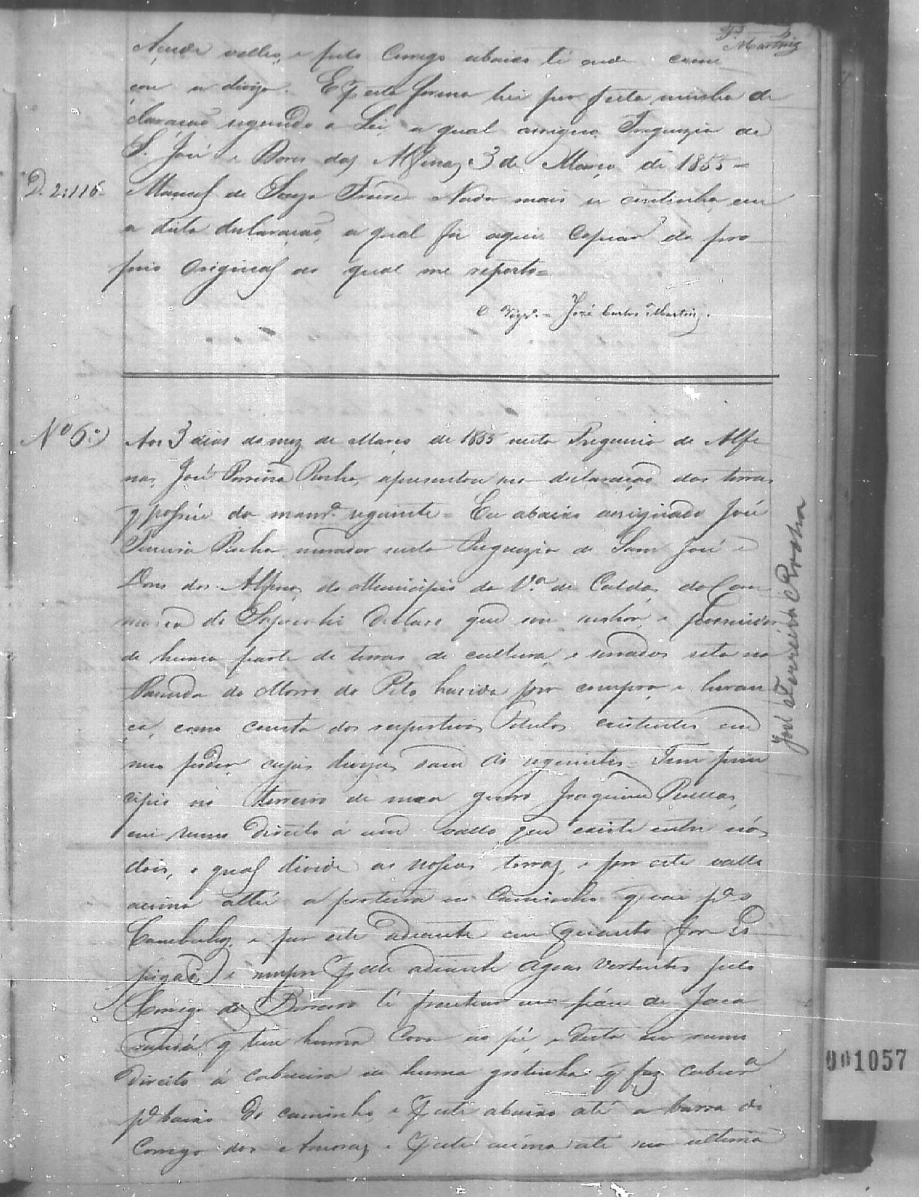 Martins
Açude vallo, e pelo Corrego abaixo té onde come
çou a diviza. E p esta forma hei por feita minha de
claração segundo a Lei, a qual assigno, Freguezia de
S. José e Dores dos Alfenas 3 de Março de 1855 =
D. 2:116
Manoel de Souza Freire Nada mais se continha em
a dita declaração, a qual foi aqui copiada do pro
prio Original ao qual me reporto =
O Vigr.º José Carlos Martins.
Nº 6º)
Aos 3 dias do mez de Março de 1855 nesta Freguezia de Alfe
nas, José Ferreira Rocha, apresentou me declaração das terras
q possúe da manrª seguinte = Eu abaixo assignado José
Ferreira Rocha, morador nesta Freguezia de Sam José e
Dores dos Alfenas do Municipio da Vª de Caldas, da Com
marca do Sapucahi Declaro que sou senhor e possuidor
de huma parte de terras de cultura, e serrados sita na
Fazenda do Morro do Pito, havida por compra, e heran
ça, como consta dos respectivos Titulos existentes em
meu poder, cujas divizas, sam as seguintes = Tem prin
cipio no terreiro de meu genro Joaquim
em rumo direito á um vallo que existe entre nós
dois, o qual divide as nossas terras, e por este vallo
acima athé a porteira no Caminho que vai pª o
e por este adiante em quanto for Es
pigão, e sempre p este adiante Agoas vertentes pelo
Corrego do Barreiro té frontear um páu de Jaca
randá q tem huma Cova ao pé, e desta em rumo
direito á cabeceira de huma grotinha q faz cabeceira
pª baixo do caminho, e p esta abaixo até a barra do
Corrego dos Amoras, e p este acima até sua ultima
José Ferreira Rocha
001057